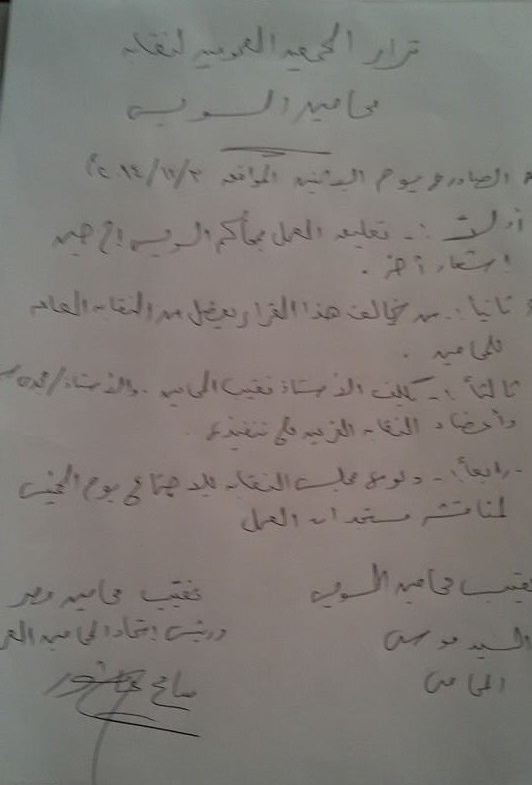 قرار الجمعية العمومية لنقابة
محامين السويس
الصادر في يوم الاثنين الموافق ٢٠١٤/١١/٣
أولاً :- تعليق العمل بمحاكم السويس إلى حين
إشعار آخر .
ثانياً :- من يخالف هذا القرار يفصل من النقابة العامة
للمحامين .
ثالثاً :- تكليف الأستاذ نقيب المحامين . والأستاذ /
وأعضاء النقابة الفرعية في تنفيذه
رابعاً :- دعوة مجلس النقابة للاجتماع في يوم الخميس
لمناقشة مستجدات العمل
نقيب محامين السويس
السيد موسى
المحامى
نقيب محامين مصر
ورئيس إتحاد المحامين العر
سامح عاشور